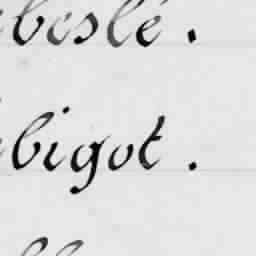 beslé.
bigot.